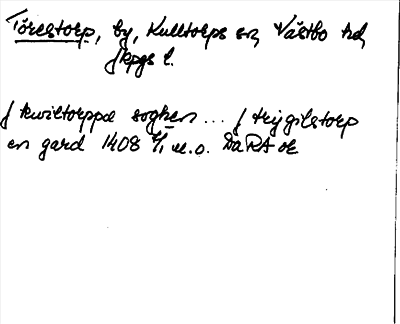 Törestorp, by, Kulltorps sn, Västbo hd,
Jkpgs l.
J kwiltorppa soghen ... j trygilstorp
en gard 1408 5/1 u.o. DaRA or